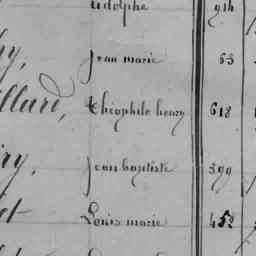 Adolphe 914
Jean marie 63
illard, théophile henry 618
Jean baptiste 399
Louis marie 452